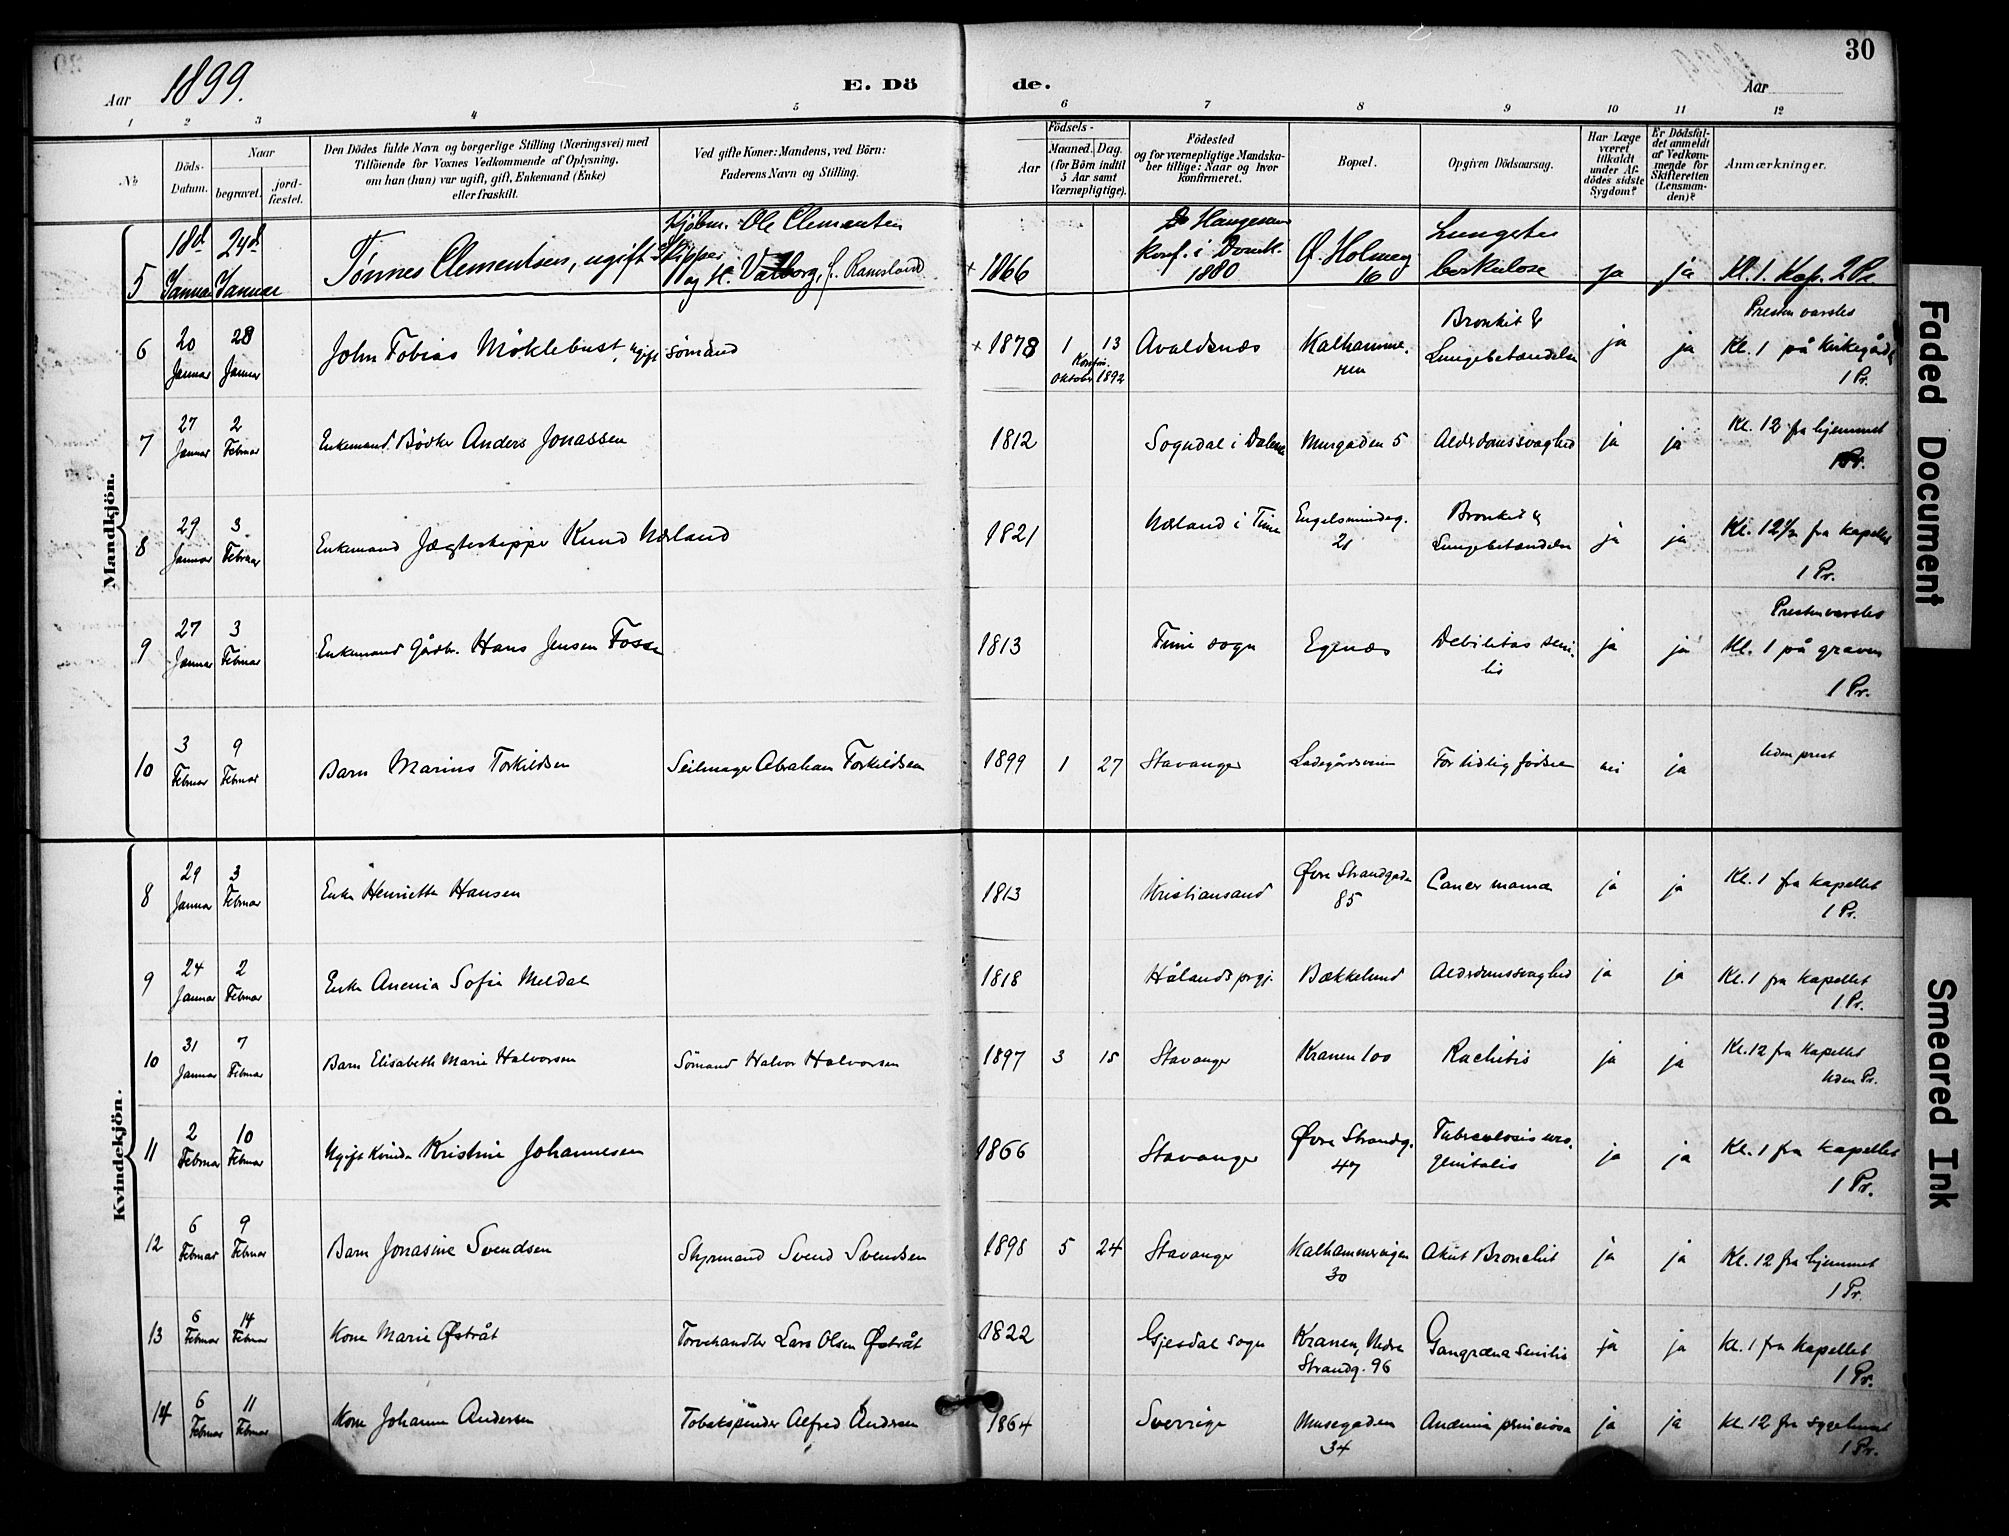 30
Aar 1899.
E. Dö de.
Aar
1 2 3 4 5 6 7 8 9 10 11 12
No
Döds-Datum.
Naar
begravet.
jord-fæstet.
Den Dödes fulde Navn og borgerlige Stilling (Næringsvei) med
Tilföiende for Voxnes Vedkommende af Oplysning,
om han (hun) var ugift, gift, Enkemand (Enke)
eller fraskilt.
Ved gifte Koner: Mandens, ved Börn:
Faderens Navn og Stilling.
Födsels-
Aar
Maaned. Dag.
(for Börn indtil
5 Aar samt
Værnepligtige).
Födested
og for værnepligtige Mandska-
ber tillige: Naar og hvor
konfirmeret.
Bopæl.
Opgiven Dödsaarsag.
Har Læge
været
tilkaldt
under Af-
dödes sidste
Sygdom?
Er Dödsfal-
det anmeldt
af Vedkom-
mende for
Skifteretten
(Lensman-
den)?
Anmærkninger.
Mandkjön.
5 18d Januar 24d Januar Tønnes Clementsen, ugift Skipper Kjøbm. Ole Clementsen og H. Valborg, f. Ramsland 1866 Haugesund Konf. i Domk. 1880 Ø. Holmeg 16 Lungetuberkulose ja ja Kl. 1. Kap. 2 Pr.
6 20 Januar 28 Januar John Tobias Møklebust, ugift sømand 1878 1 13 Konfir. Oktober 1892 Avaldsnæs Kalhammeren Bronkit & Lungebetændelse ja ja Presten varsles Kl. 1 på Kirkegård 1 Pr.
7 27 Januar 2 Februar Enkemand Bødker Anders Jonassen 1812 Sogndal i Dalene Murgaden 5 Alderdomssvaghed ja ja Kl. 12 fra hjemmet 1 Pr.
8 29 Januar 3 Februar Enkemand Jægteskipper Knud Næland 1821 Næland i Time Engelsmindeg. 21 Bronkit & Lungebetændelse ja ja Kl. 12½ fra kapellet 1 Pr.
9 27 Januar 3 Februar Enkemand Gårdbr. Hans Jensen Fosse 1813 Time sogn Egenæs Debilitas senilis ja ja Presten varsles Kl. 1 på graven 1 Pr.
10 3 Februar 9 Februar Barn Marius Torkildsen Seilmager Abraham Torkildsen 1899 1 27 Stavanger Ladegårdsveien For tidlig fødsel nei ja Uden prest
Kvindekjön.
8 29 Januar 3 Februar Enke Henriette Hansen 1813 Kristiansand Øvre Strandgaden 85 Cancer mamæ ja ja Kl. 1 fra kapellet 1 Pr.
9 24 Januar 2 Februar Enke Anenia Sofie Meldal 1818 Hålands prgj. Bækkelund Alderdomssvaghed ja ja Kl. 1 fra kapellet 1 Pr.
10 31 Januar 7 Februar Barn Elisabeth Marie Halvorsen Sømand Halvor Halvorsen 1897 3 15 Stavanger Kranen 100 Rachitis ja ja Kl. 12 fra kapellet Uden Pr.
11 2 Februar 10 Februar Ugift Kvinde Kristine Johannesen 1866 Stavanger Øvre Strandg. 47 Tuberculosis urogenitalis ja ja Kl. 1 fra kapellet 1 Pr.
12 6 Februar 9 Februar Barn Jonasine Svendsen Styrmand Svend Svendsen 1898 5 24 Stavanger Kalhammervigen 30 Akut Bronchit ja ja Kl. 12 fra hjemmet 1 Pr.
13 6 Februar 14 Februar Kone Marie Østråt Torvehandler Lars Olsen Østråt 1822 Gjesdal sogn Kranen, Nedre Strandg. 96 Gangræna senilis ja ja Kl. 1 fra kapellet 1 Pr.
14 6 Februar 11 Februar Kone Johanne Andersen Tobakspinder Alfred Andersen 1864 Sverrige Musegaden 34 Anæmia perniciosa ja ja Kl. 12 fra sygehuset 1 Pr.
Faded Document
Smeared Ink